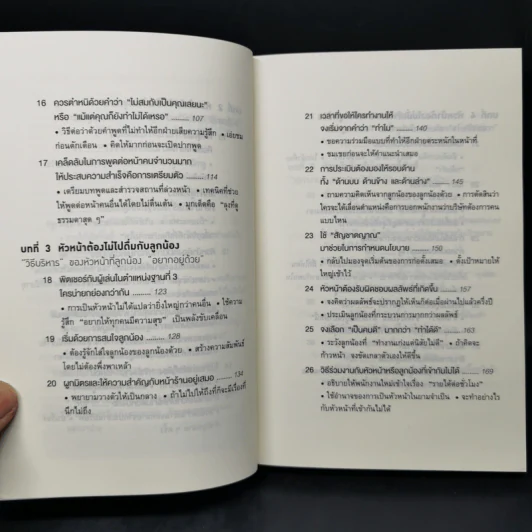 16 ควรตำหนิด้วยคำว่า "ไม่สมกับเป็นคุณเลยนะ"
หรือ "แม้แต่คุณก็ยังทำไม่ได้เหรอ" 107
• วิธีต่อว่าด้วยคำพูดที่ไม่ทำให้อีกฝ่ายเสียความรู้สึก • เอ่ยชม
ก่อนตักเตือน • คิดให้มากก่อนจะเปิดปากพูด
17 เคล็ดลับในการพูดต่อหน้าคนจำนวนมาก
ให้ประสบความสำเร็จคือการเตรียมตัว 114
• เตรียมบทพูดและสำรวจสถานที่ล่วงหน้า • เทคนิคที่ช่วย
ให้พูดต่อหน้าคนอื่นได้โดยไม่ตื่นเต้น • มุกเด็ดคือ "ลุงที่ดู
ธรรมดาสุด ๆ"
บทที่ 3 หัวหน้าต้องไม่ไปดื่มกับลูกน้อง
"วิธีบริหาร" ของหัวหน้าที่ลูกน้อง "อยากอยู่ด้วย"
18 พิตเชอร์กับผู้เล่นในตำแหน่งฐานที่ 3
ใครน่ายกย่องกว่ากัน 123
• การเป็นหัวหน้าไม่ได้แปลว่ายิ่งใหญ่กว่าคนอื่น • ใช้ความ
รู้สึก "อยากให้ทุกคนมีความสุข" เป็นพลังขับเคลื่อน
19 เริ่มด้วยการสนใจลูกน้อง 128
• ต้องรู้จักใส่ใจลูกน้องของลูกน้องด้วย • สร้างความสัมพันธ์
โดยไม่ต้องพึ่งพาเหล้า
20 ผูกมิตรและให้ความสำคัญกับหน้าร้านอยู่เสมอ 134
• พยายามวางตัวให้เป็นกลาง • ถ้าไม่ไปให้ถึงที่ก็จะมีเรื่องที่
นึกไม่ถึง
21 เวลาที่ขอให้ใครทำงานให้
จงเริ่มจากคำว่า "ทำไม" 140
• ขอความร่วมมือแบบที่ทำให้อีกฝ่ายตระหนักในหน้าที่
• ชมเชยก่อนจะให้คำแนะนำเสมอ
22 การประเมินต้องมองให้รอบด้าน
ทั้ง "ด้านบน ด้านข้าง และด้านล่าง" 145
• ถามความคิดเห็นจากลูกน้องของลูกน้องด้วย • การตัดสินว่า
ใครจะได้เลื่อนตำแหน่งคือการบอกพนักงานว่าบริษัทต้องการคน
แบบไหน
23 ใช้ "สัญชาตญาณ"
มาช่วยในการกำหนดนโยบาย 150
• กลับไปมองจุดเริ่มต้นของการก่อตั้งเสมอ • ตั้งเป้าหมายให้
ใหญ่เข้าไว้
24 หัวหน้าต้องรับผิดชอบผลลัพธ์ที่เกิดขึ้น 157
• จงคิดว่าผลลัพธ์จะปรากฏให้เห็นก็ต่อเมื่อผ่านไปแล้วครึ่งปี
• ประเมินลูกน้องที่กระบวนการมากกว่าผลลัพธ์
25 จงเลือก "เป็นคนดี" มากกว่า "ทำได้ดี" 163
• ระวังลูกน้องที่ "ทำงานเก่งแต่นิสัยไม่ดี" • ถ้าคิดจะ
ก้าวหน้า จงขัดเกลาตัวเองให้ดีขึ้น
26 วิธีร่วมงานกับหัวหน้าหรือลูกน้องที่เข้ากันไม่ได้ 169
• อธิบายให้พนักงานใหม่เข้าใจเรื่อง "รายได้ต่อชั่วโมง"
• ใช้อำนาจของการเป็นหัวหน้าในยามจำเป็น • จะทำอย่างไร
กับหัวหน้าที่เข้ากันไม่ได้